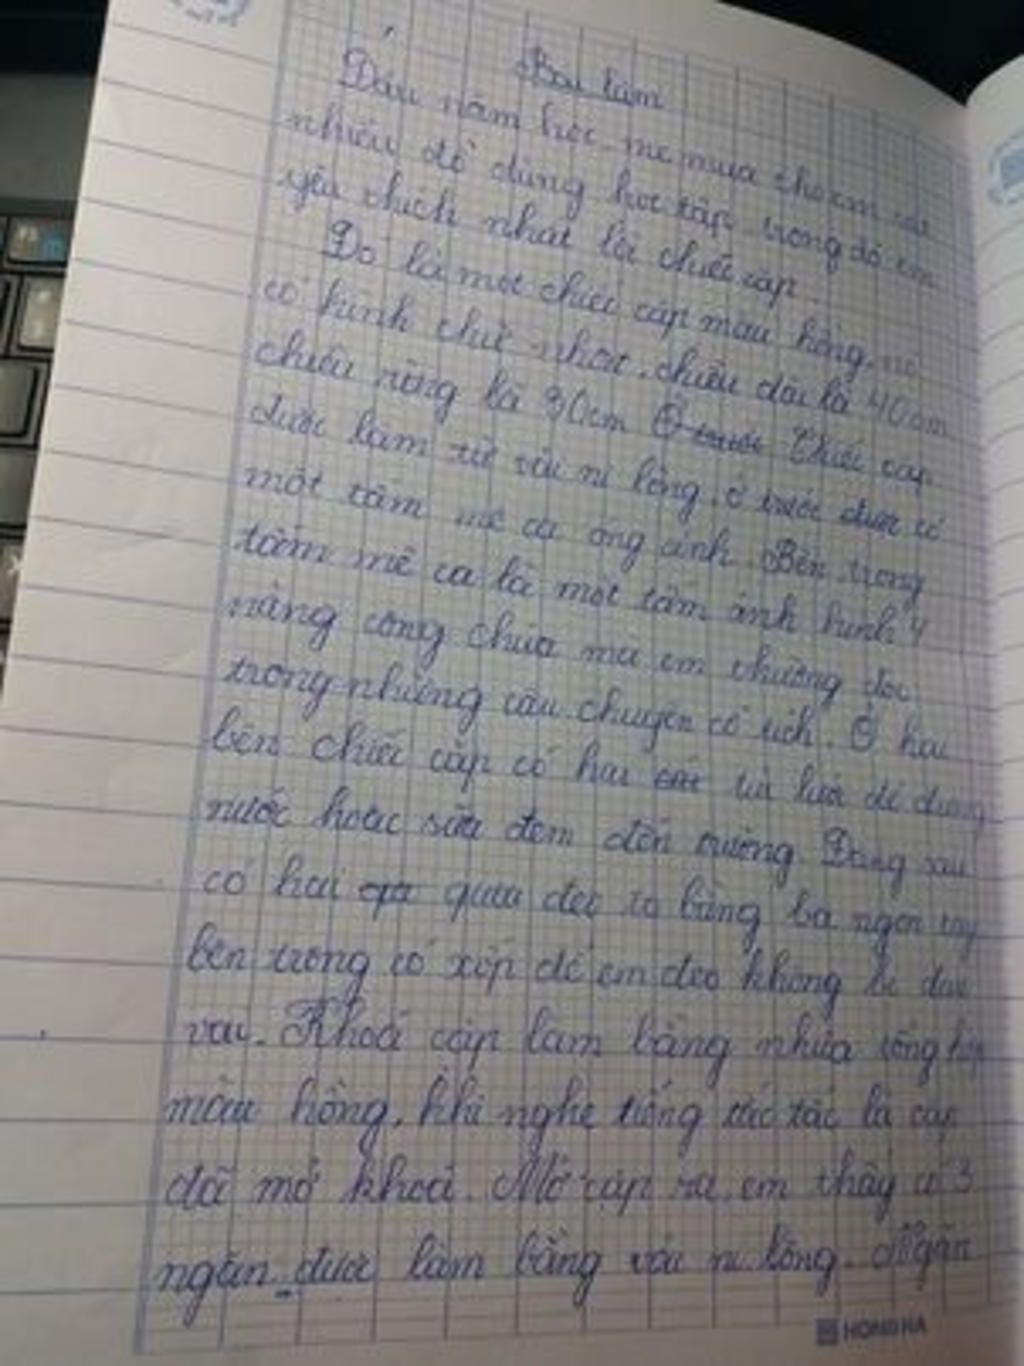 Bài làm
Đầu năm học mẹ mua cho em rất
nhiều đồ dùng học tập trong đó em
yêu thích nhất là chiếc cặp.
Đó là một chiếc cặp màu hồng, nó
có hình chữ nhật, chiều dài là 40cm
chiều rộng là 30cm Chiếc cặp
được làm từ vải ni lông, ở trước có
một tấm mê ca óng ánh. Bên trong
tấm mê ca là một tấm ảnh hình 4
nàng công chúa mà em thường đọc
trong những câu chuyện cổ tích. Ở hai
bên chiếc cặp có hai túi lưới để đựng
nước hoặc sữa đem đến trường. Đằng sau
có hai quai đeo to bằng ba ngón tay
bên trong có xốp để em đeo không bị đau
vai. Khoá cặp làm bằng nhựa tổng hợp
màu hồng, khi nghe tiếng tác là cặp
đã mở khoá. Mở cặp ra, em thấy có 3
ngăn được làm bằng vải ni lông. Ngăn
HONG HA